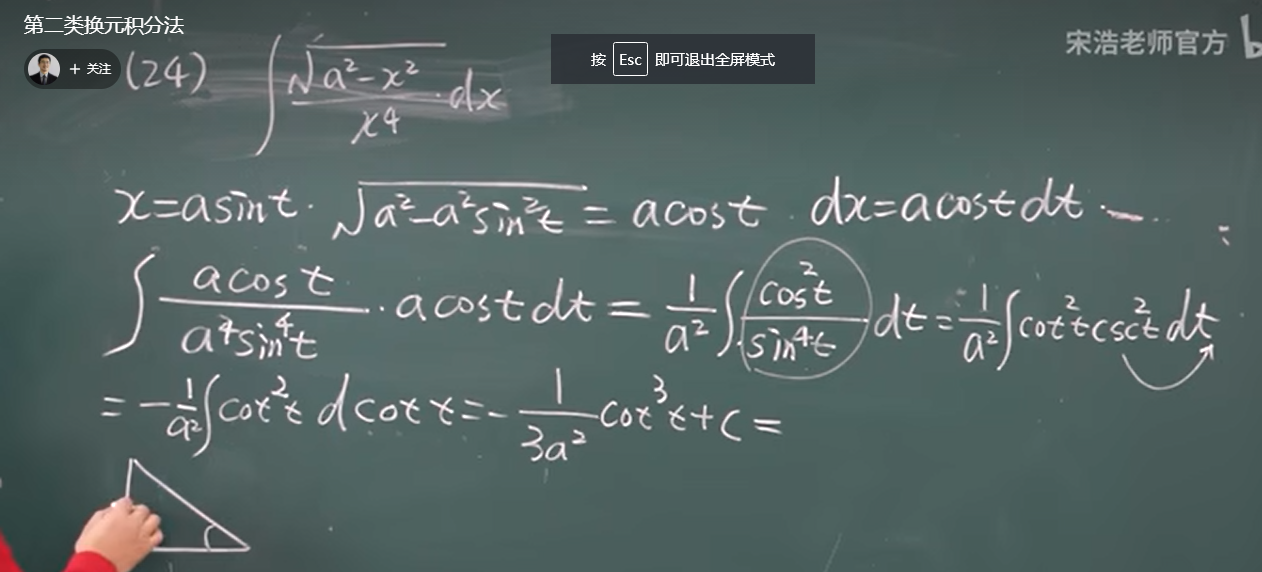 第二类换元积分法
+ 关注
按 Esc 即可退出全屏模式
宋浩老师官方 b
(24) ∫ √(a²-x²)/x⁴ · dx
x=asint · √(a²-a²sin²t) = acost · dx=acostdt ·
∫ acost/(a⁴sin⁴t) · acostdt = 1/a² ∫ cos²t/sin⁴t dt = 1/a² ∫cot²tcsc²t dt
= -1/a² ∫cot²t dcott = -1/(3a²) cot³t+c =